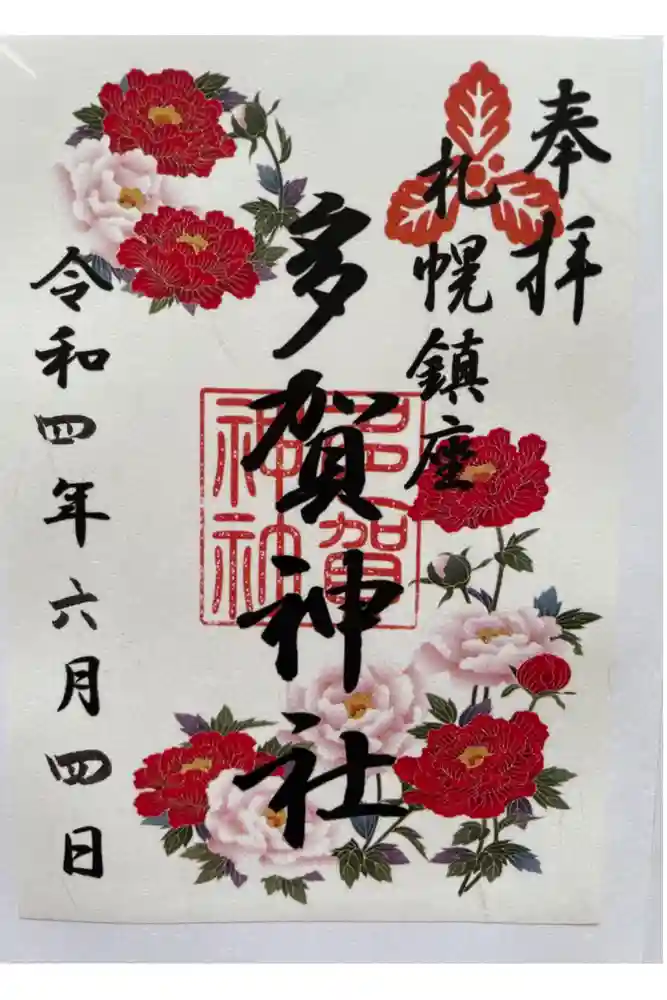 奉拝
札幌鎮座
多賀神社
多賀
神社
令和四年六月四日